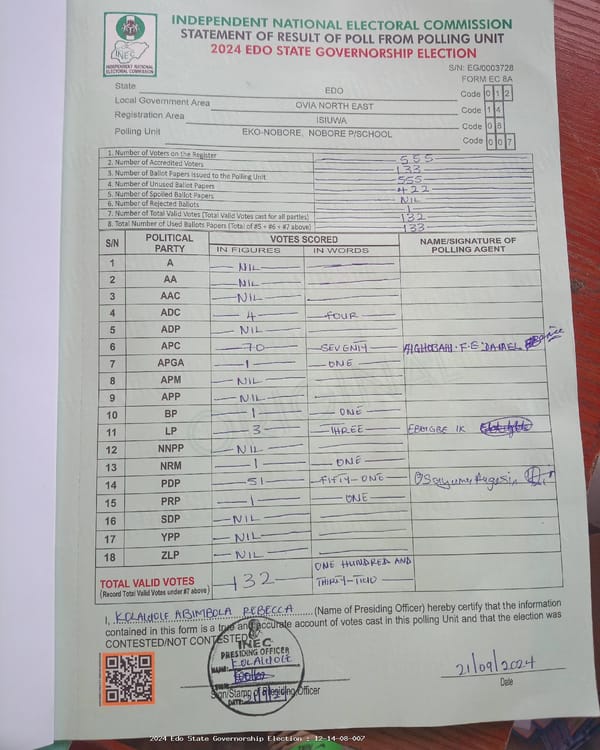 INDEPENDENT NATIONAL ELECTORAL COMMISSION
STATEMENT OF RESULT OF POLL FROM POLLING UNIT
2024 EDO STATE GOVERNORSHIP ELECTION
INEC
INDEPENDENT NATIONAL
ELECTORAL COMMISSION
S/N: EG/0003728
FORM EC 8A
State EDO Code 0 1 2
Local Government Area OVIA NORTH EAST Code 1 4
Registration Area ISIUWA Code 0 8
Polling Unit EKO-NOBORE, NOBORE P/SCHOOL Code 0 0 7
1. Number of Voters on the Register 555
2. Number of Accredited Voters 133
3. Number of Ballot Papers Issued to the Polling Unit 555
4. Number of Unused Ballot Papers 422
5. Number of Spoiled Ballot Papers NIL
6. Number of Rejected Ballots 1
7. Number of Total Valid Votes (Total Valid Votes cast for all parties) 132
8. Total Number of Used Ballots Papers (Total of #5 + #6 + #7 above) 133
S/N POLITICAL PARTY VOTES SCORED NAME/SIGNATURE OF POLLING AGENT
IN FIGURES IN WORDS
1 A NIL
2 AA NIL
3 AAC NIL
4 ADC 4 FOUR
5 ADP NIL
6 APC 70 SEVENTY
7 APGA 1 ONE
8 APM NIL
9 APP NIL
10 BP 1 ONE
11 LP 3 THREE EBOIGBE IK
12 NNPP NIL
13 NRM 1 ONE
14 PDP 51 FIFTY-ONE
15 PRP 1 ONE
16 SDP NIL
17 YPP NIL
18 ZLP NIL
TOTAL VALID VOTES 132 ONE HUNDRED AND THIRTY-TWO
(Record Total Valid Votes under #7 above)
I, KOLAWOLE ABIMBOLA REBECCA (Name of Presiding Officer) hereby certify that the information
contained in this form is a true and accurate account of votes cast in this polling Unit and that the election was
CONTESTED/NOT CONTESTED
INEC
PRESIDING OFFICER
NAME: KOLAWOLE
SIGN:
DATE: 21/9/24
Sign/Stamp of Presiding Officer
21/09/2024
Date
2024 Edo State Governorship Election : 12-14-08-007